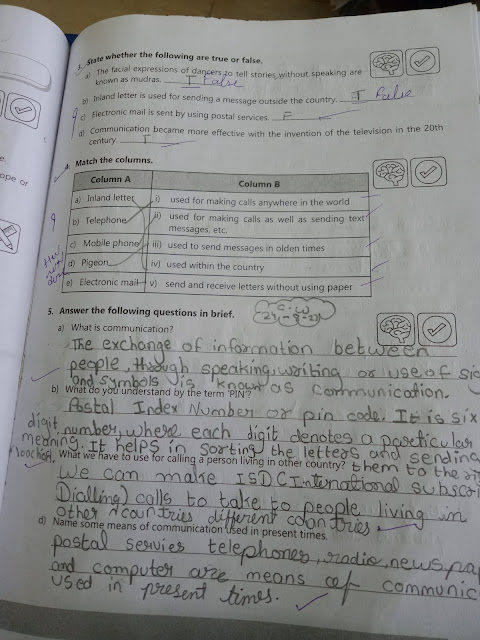 3. State whether the following are true or false.
a) The facial expressions of dancers to tell stories without speaking are
known as mudras. T False
b) Inland letter is used for sending a message outside the country. T False
c) Electronic mail is sent by using postal services. F
d) Communication became more effective with the invention of the television in the 20th
century. T
e.
ope or
4. Match the columns.
Column A Column B
a) Inland letter i) used for making calls anywhere in the world
b) Telephone ii) used for making calls as well as sending text
messages, etc.
c) Mobile phone iii) used to send messages in olden times
d) Pigeon iv) used within the country
e) Electronic mail v) send and receive letters without using paper
C.W
5. Answer the following questions in brief.
a) What is communication?
The exchange of information between
people, through speaking, writing or use of
and symbols is known as communication.
b) What do you understand by the term 'PIN'?
Postal Index Number or pin code. It is six
digit number, where each digit denotes a particular
meaning. It helps in sorting the letters and sending
them to the
What we have to use for calling a person living in other country?
We can make ISD (International Subscri
Dialling) calls to take to people living in
other countries different countries
d) Name some means of communication used in present times.
postal servies telephones, radio, newspa
and computer are means of communic
used in present times.